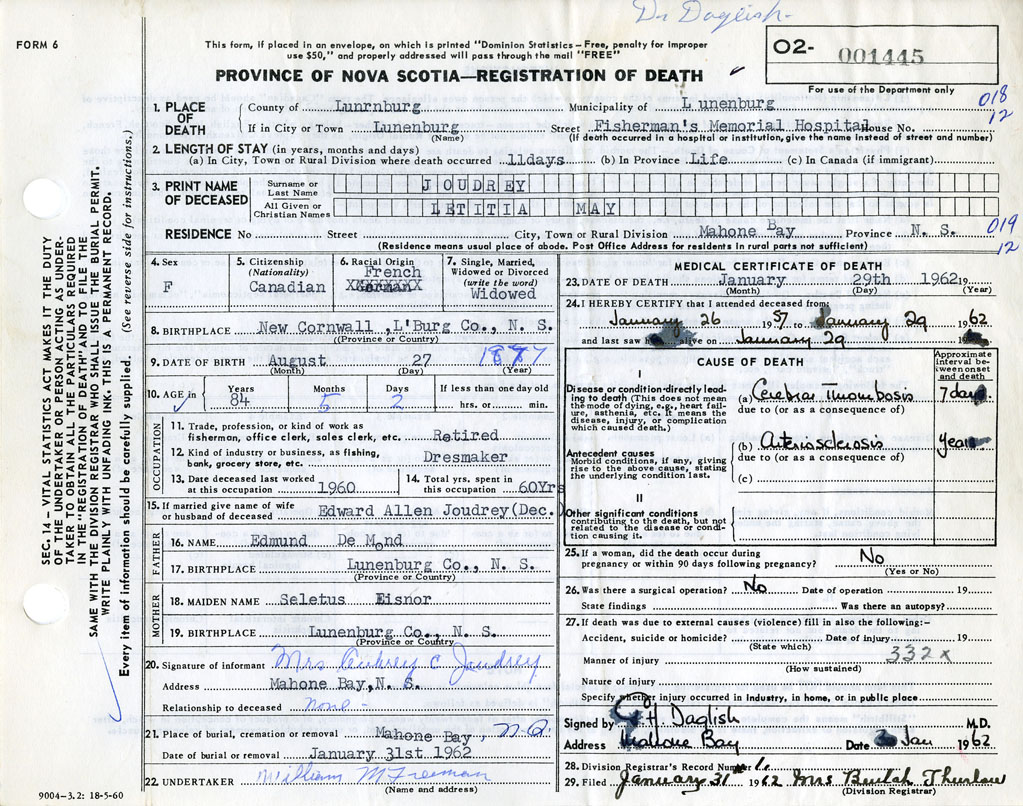 Dr Daglish-
FORM 6
This form, if placed in an envelope, on which is printed "Dominion Statistics—Free, penalty for improper
use $50," and properly addressed will pass through the mail "FREE"
O2- 001445
For use of the Department only
PROVINCE OF NOVA SCOTIA—REGISTRATION OF DEATH
018
12
1. PLACE OF DEATH County of Lunrnburg Municipality of L unenburg
If in City or Town Lunenburg Street Fisherman's Memorial Hospital House No.
(Name) (If death occurred in a hospital or institution, give the name instead of street and number)
2. LENGTH OF STAY (in years, months and days)
(a) In City, Town or Rural Division where death occurred 11days (b) In Province Life (c) In Canada (if immigrant)
3. PRINT NAME OF DECEASED Surname or Last Name JOUDREY
All Given or Christian Names LETITIA MAY
RESIDENCE No Street City, Town or Rural Division Mahone Bay Province N. S.
019
12
(Residence means usual place of abode. Post Office Address for residents in rural parts not sufficient)
4. Sex
F
5. Citizenship
(Nationality)
Canadian
6. Racial Origin
French
XXXXXXXX
7. Single, Married,
Widowed or Divorced
(write the word)
Widowed
8. BIRTHPLACE New Cornwall ,L'Burg Co., N. S.
(Province or Country)
9. DATE OF BIRTH August 27 1877
(Month) (Day) (Year)
10. AGE in Years Months Days If less than one day old
84 5 2 hrs. or min.
OCCUPATION
11. Trade, profession, or kind of work as
fisherman, office clerk, sales clerk, etc. Retired
12. Kind of industry or business, as fishing,
bank, grocery store, etc. Dresmaker
13. Date deceased last worked
at this occupation 1960
14. Total yrs. spent in
this occupation 60Yrs
15. If married give name of wife
or husband of deceased Edward Allen Joudrey(Dec.)
FATHER
16. NAME Edmund De Mond
17. BIRTHPLACE Lunenburg Co., N. S.
(Province or Country)
MOTHER
18. MAIDEN NAME Seletus Eisnor
19. BIRTHPLACE Lunenburg Co., N. S.
(Province or Country)
20. Signature of informant Mrs Aubrey C Joudrey
Address Mahone Bay,N. S.
Relationship to deceased none -
21. Place of burial, cremation or removal Mahone Bay, N.S.
Date of burial or removal January 31st 1962
22. UNDERTAKER William M Freeman
(Name and address)
9004—3.2: 18-5-60
MEDICAL CERTIFICATE OF DEATH
23. DATE OF DEATH January 29th 1962
(Month) (Day) (Year)
24. I HEREBY CERTIFY that I attended deceased from:
January 26 1957 to January 29 1962
and last saw h alive on January 29 19
CAUSE OF DEATH
Approximate
interval be-
tween onset
and death
I
Disease or condition directly lead-
ing to death (This does not mean
the mode of dying, e.g., heart fail-
ure, asthenia, etc. It means the
disease, injury, or complication
which caused death.)
(a) Cerebral Thombosis 7 days
due to (or as a consequence of)
Antecedent causes
Morbid conditions, if any, giving
rise to the above cause, stating
the underlying condition last.
(b) Arteriosclerosis years
due to (or as a consequence of)
(c)
II
Other significant conditions
contributing to the death, but not
related to the disease or condi-
tion causing it.
25. If a woman, did the death occur during
pregnancy or within 90 days following pregnancy? No
(Yes or No)
26. Was there a surgical operation? No Date of operation 19
State findings Was there an autopsy?
27. If death was due to external causes (violence) fill in also the following:-
Accident, suicide or homicide? Date of injury 19
(State which)
332x
Manner of injury
(How sustained)
Nature of injury
Specify whether injury occurred in industry, in home, or in public place
Signed by H. Daglish M.D.
Address Mahone Bay Date 30 Jan 1962
28. Division Registrar's Record Number 1.
29. Filed January 31 1962 Mrs Beulah Thurlow
(Division Registrar)
SEC. 14 — VITAL STATISTICS ACT MAKES IT THE DUTY
OF THE UNDERTAKER OR PERSON ACTING AS UNDER-
TAKER TO OBTAIN ALL THE PARTICULARS REQUIRED
IN THE "REGISTRATION OF DEATH" AND TO FILE THE
SAME WITH THE DIVISION REGISTRAR WHO SHALL ISSUE THE BURIAL PERMIT.
WRITE PLAINLY WITH UNFADING INK. THIS IS A PERMANENT RECORD.
Every item of information should be carefully supplied. (See reverse side for instructions.)